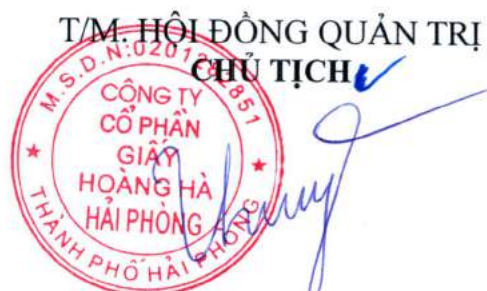 T/M. HỘI ĐỒNG QUẢN TRỊ
CHỦ TỊCH
CÔNG TY
CỔ PHẦN
GIẤY
HOÀNG HÀ
HẢI PHÒNG
THÀNH PHỐ HẢI PHÒNG